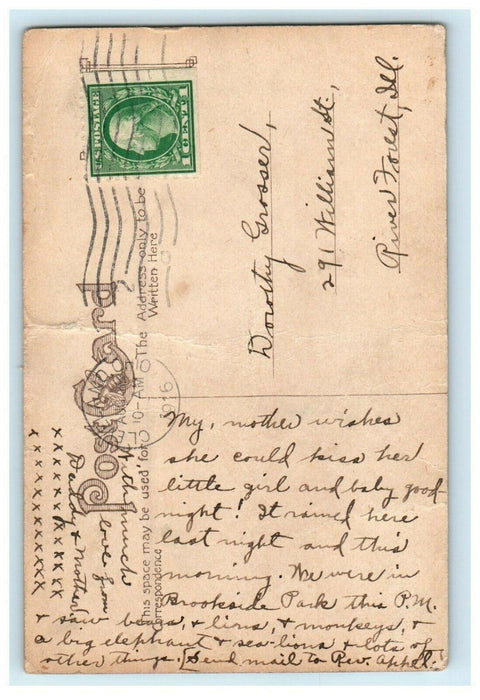 U.S. POSTAGE
1 CENT 1
Post Card
This space may be used for
Correspondence
The Address only to be
Written Here
10-AM
1916
Dorothy Grosser,
291 William St.,
River Forest, Ill.
My, mother wishes
she could kiss her
little girl and baby good
night! It rained here
last night and this
morning. We were in
Brookside Park this P.M.
& saw bears, & lions, & monkeys, &
a big elephant & sea-lions & lots of
other things. [Send mail to Rev. Appel.
With much
love from
Daddy & Mother.
xxxxxxxxxxx
xxxxxxxxxxx